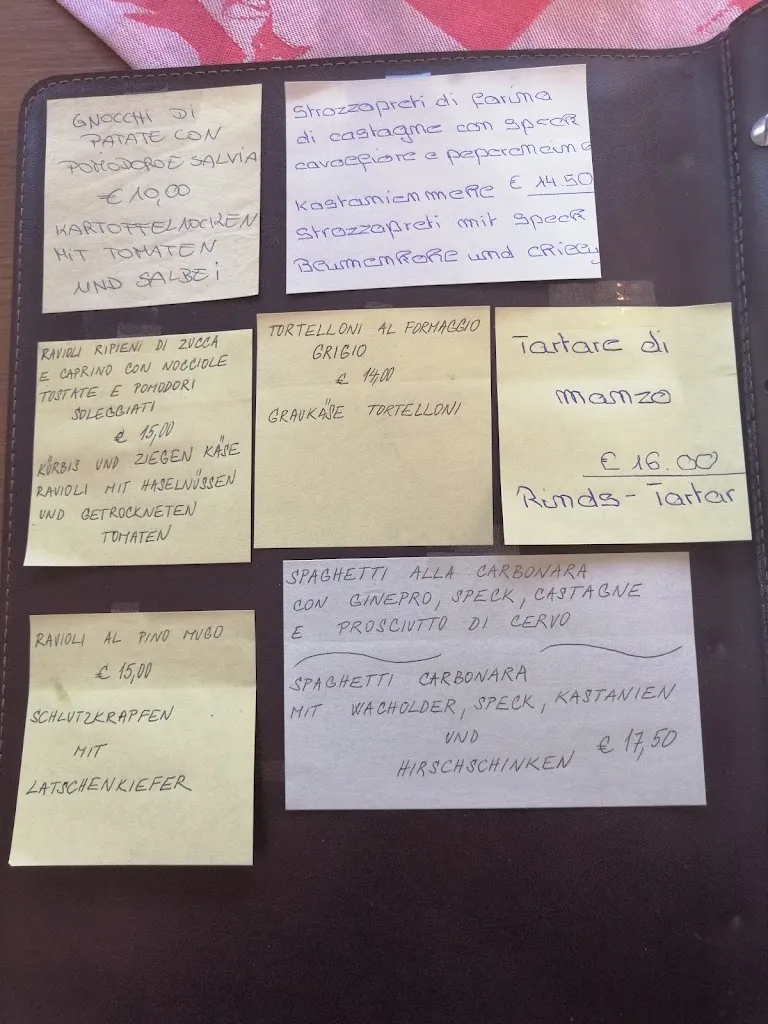 GNOCCHI DI
PATATE CON
POMODORO E SALVIA
€ 10,00
KARTOFFELNOCKEN
MIT TOMATEN
UND SALBEi
Strozzapreti di farina
di castagne con speck
cavolfiore e peperoncino
€ 14.50
Kastanienmehl
Strozzapreti mit Speck
Blumenkohl und Chilly
RAVIOLI RIPIENI DI ZUCCA
E CAPRINO CON NOCCIOLE
TOSTATE E POMODORI
SOLEGGIATI
€ 15,00
KÜRBIS UND ZIEGEN KÄSE
RAVIOLI MIT HASELNÜSSEN
UND GETROCKNETEN
TOMATEN
TORTELLONI AL FORMAGGIO
GRIGIO
€ 14,00
GRAUKÄSE TORTELLONI
Tartare di
manzo
€ 16.00
Rinds-Tartar
RAVIOLI AL PINO MUGO
€ 15,00
SCHLUTZKRAPFEN
MIT
LATSCHENKIEFER
SPAGHETTI ALLA CARBONARA
CON GINEPRO, SPECK, CASTAGNE
E PROSCIUTTO DI CERVO
SPAGHETTI CARBONARA
MIT WACHOLDER, SPECK, KASTANIEN
UND
HIRSCHSCHINKEN € 17,50